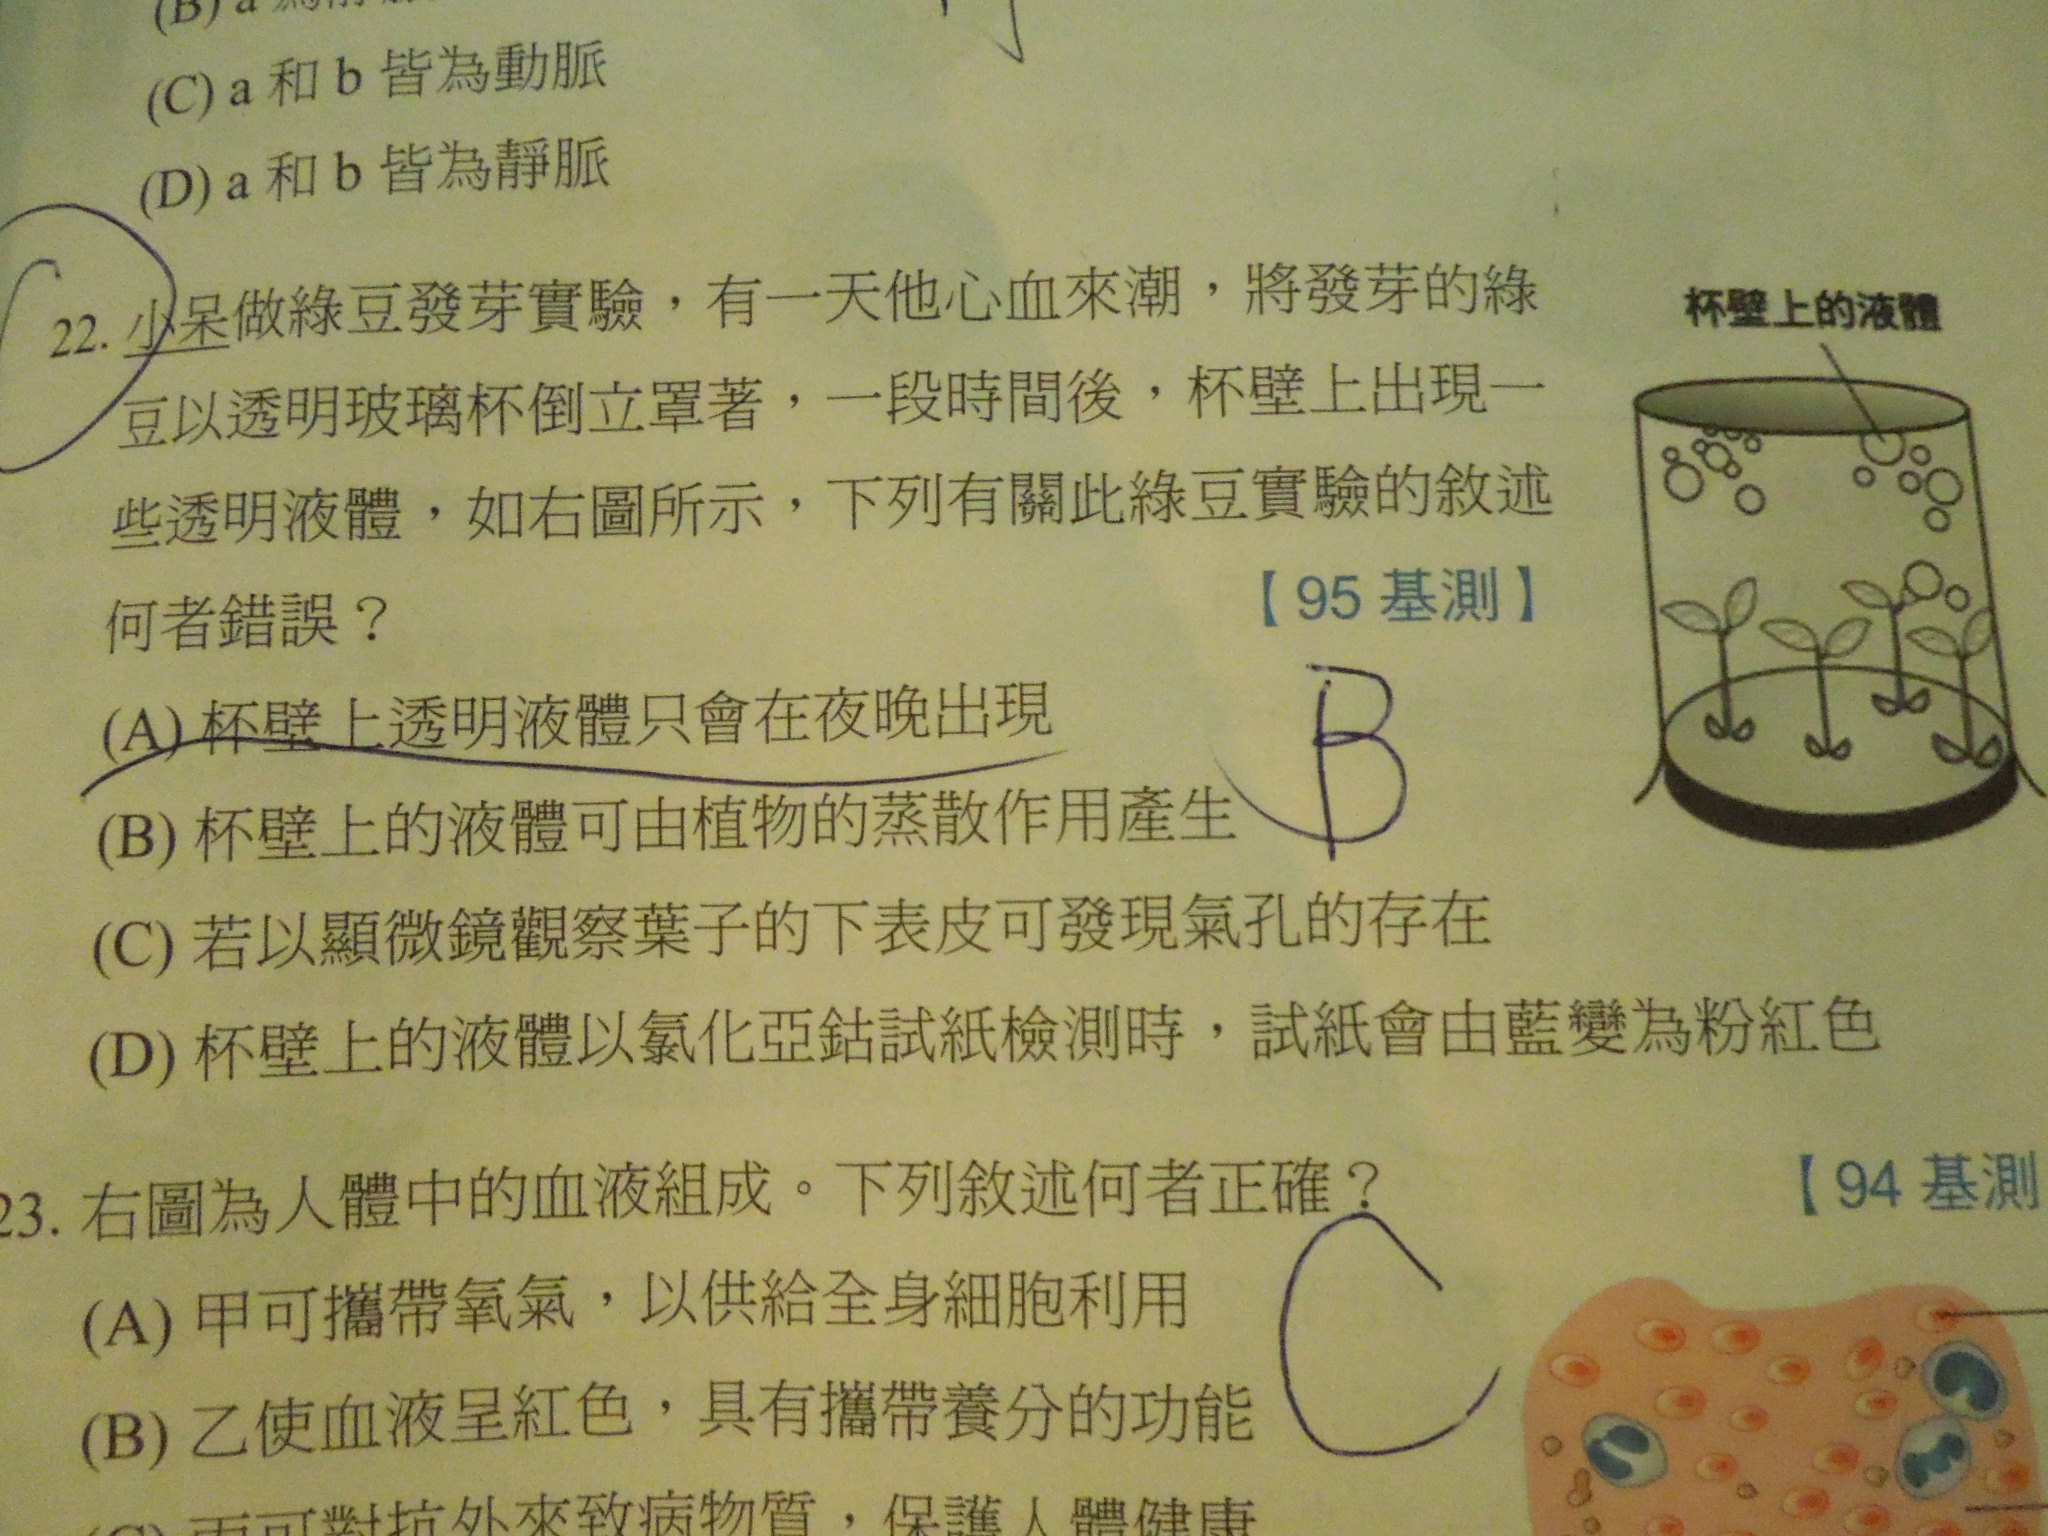 (B) a
(C) a 和 b 皆為動脈
(D) a 和 b 皆為靜脈
22. 小呆做綠豆發芽實驗，有一天他心血來潮，將發芽的綠
豆以透明玻璃杯倒立罩著，一段時間後，杯壁上出現一
些透明液體，如右圖所示，下列有關此綠豆實驗的敘述
何者錯誤？
【95 基測】
杯壁上的液體
(A) 杯壁上透明液體只會在夜晚出現
B
(B) 杯壁上的液體可由植物的蒸散作用產生
(C) 若以顯微鏡觀察葉子的下表皮可發現氣孔的存在
(D) 杯壁上的液體以氯化亞鈷試紙檢測時，試紙會由藍變為粉紅色
23. 右圖為人體中的血液組成。下列敘述何者正確？
【94 基測
C
(A) 甲可攜帶氧氣，以供給全身細胞利用
(B) 乙使血液呈紅色，具有攜帶養分的功能
(C) 丙可對抗外來致病物質，保護人體健康